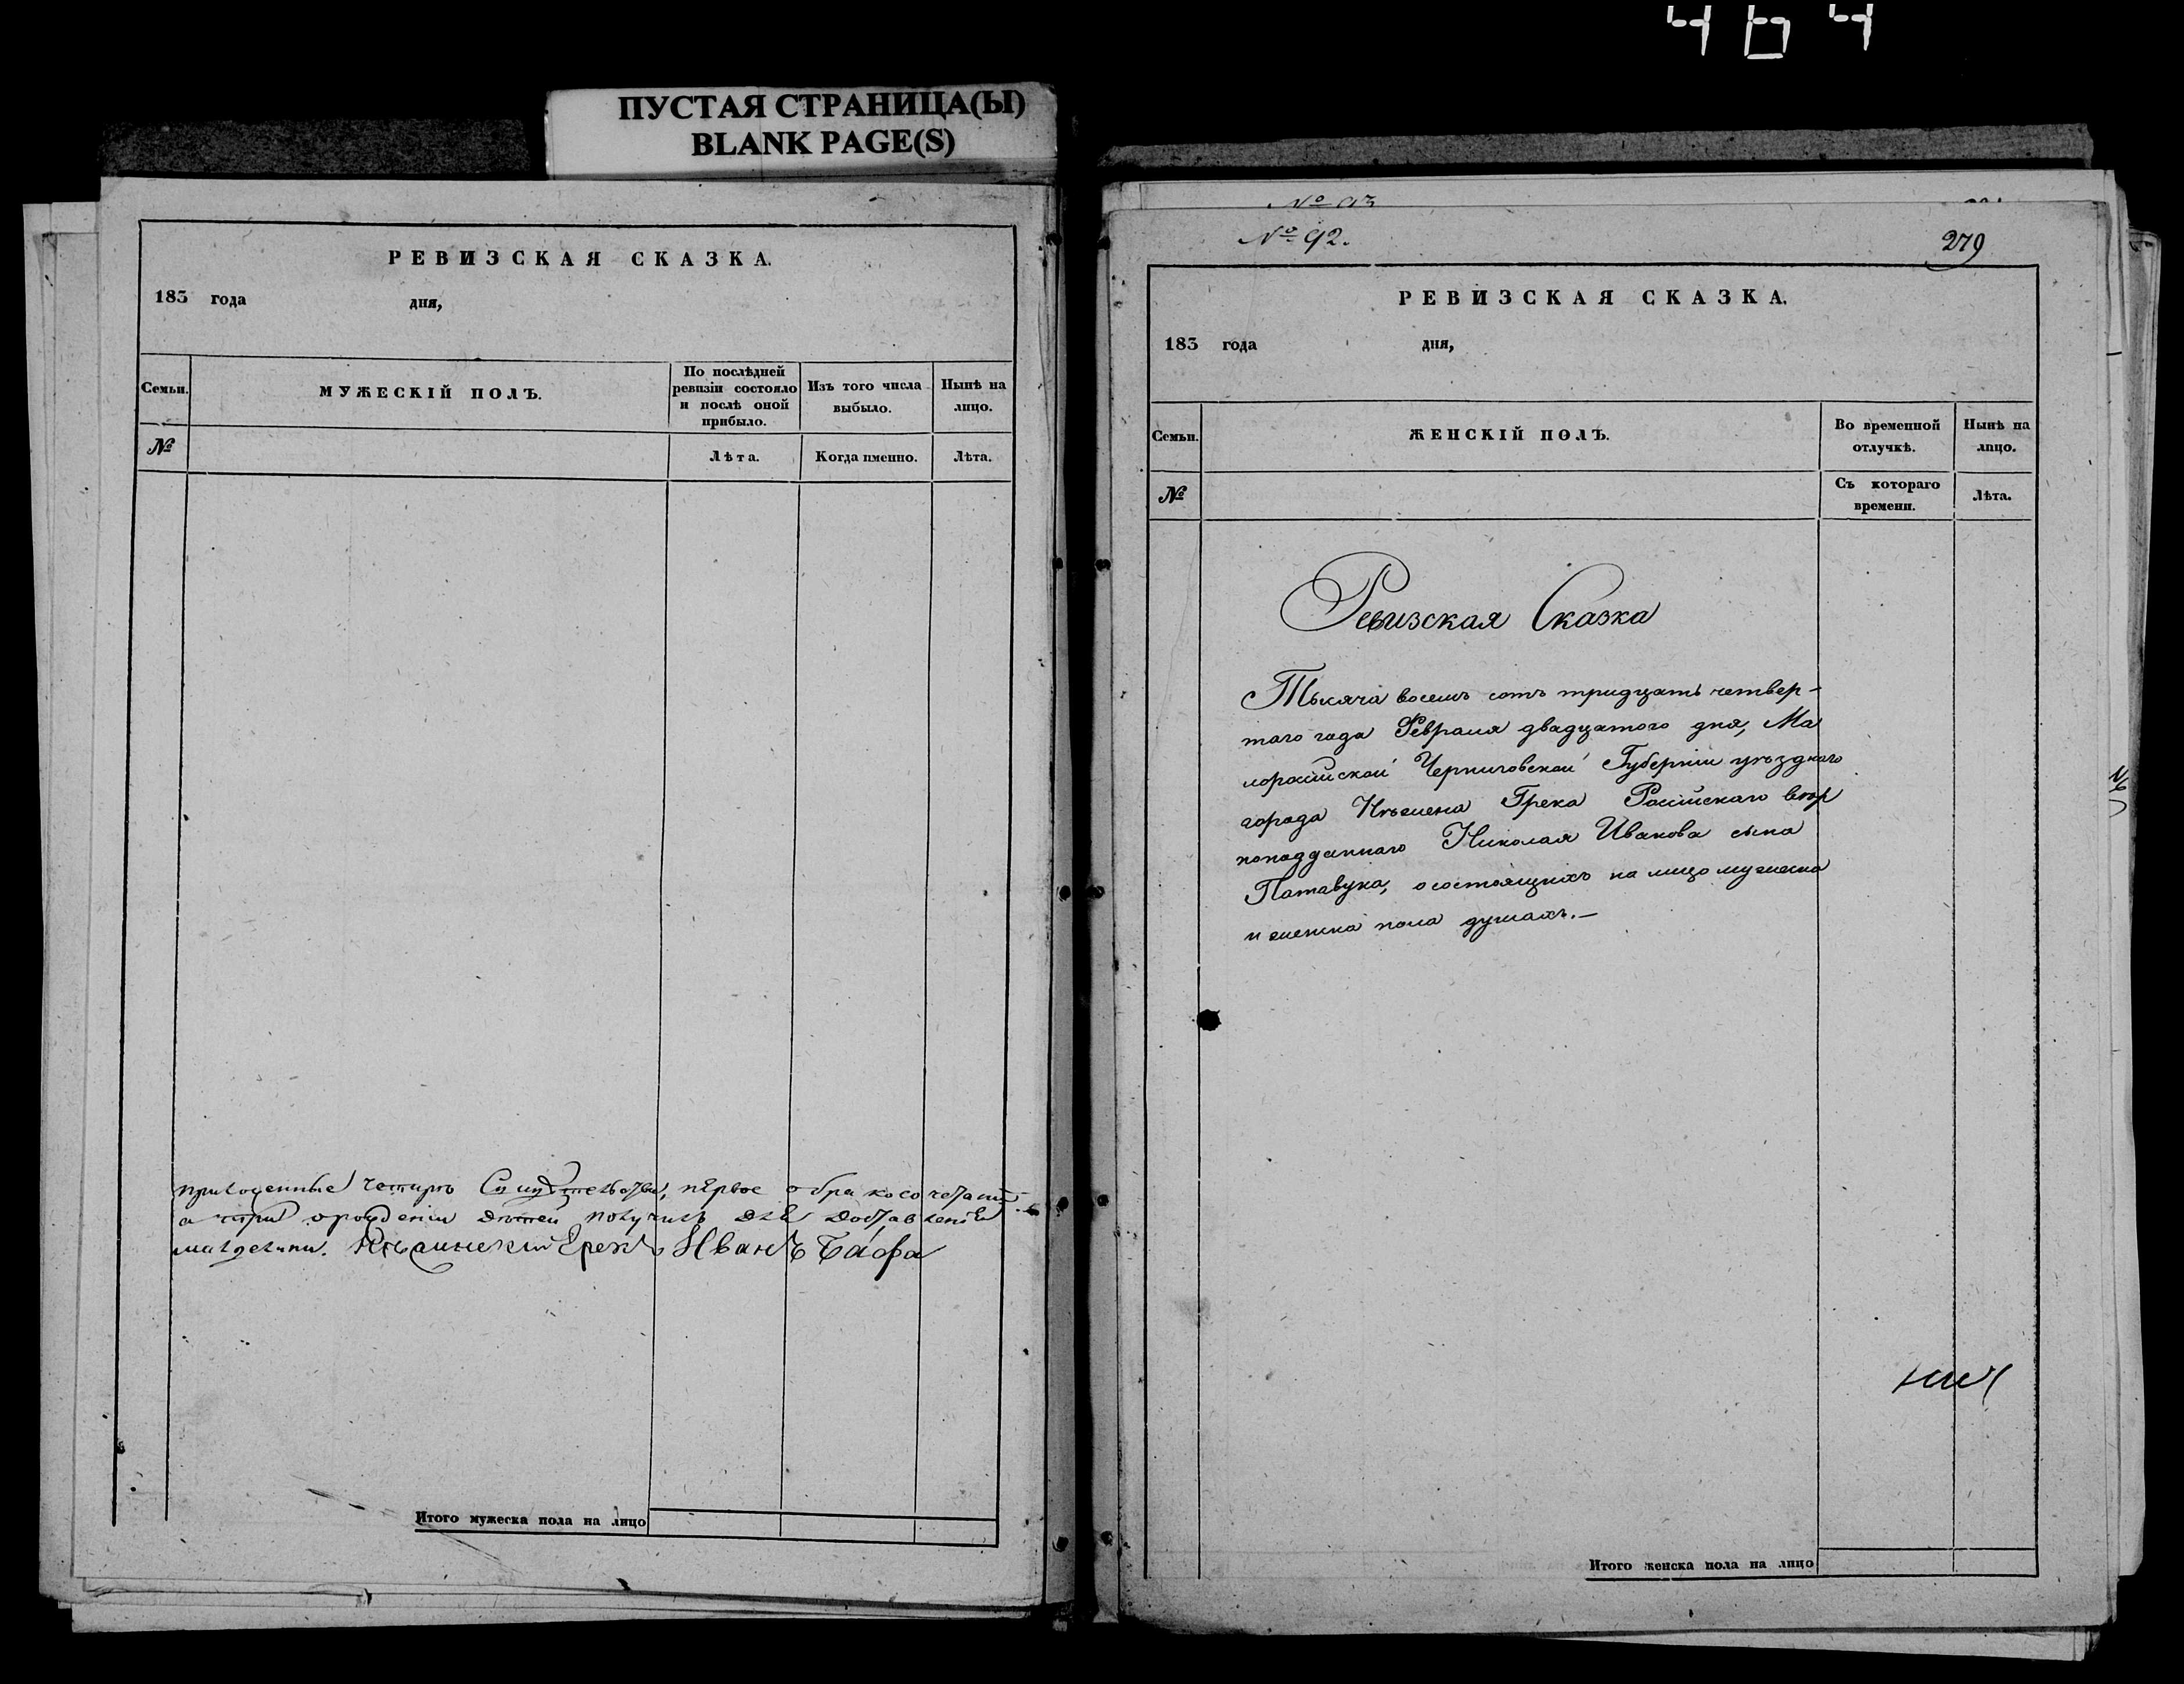 464
ПУСТАЯ СТРАНИЦА(Ы)
BLANK PAGE(S)
РЕВИЗСКАЯ СКАЗКА.
183 года дня,
Семьи.
МУЖЕСКІЙ ПОЛЪ.
По послѣдней
ревизіи состояло
и послѣ оной
прибыло.
Изъ того числа
выбыло.
Нынѣ на
лицо.
№
Лѣта.
Когда именно.
Лѣта.
первое о бракосочетаніи
а три о рождении дѣтей получилъ для доставленія
Нѣжинский Грекъ Иванъ Бафа
Итого мужеска пола на лицо
№ 93
№ 92.
279
РЕВИЗСКАЯ СКАЗКА.
183 года дня,
Семьи.
ЖЕНСКІЙ ПОЛЪ.
Во временной
отлучкѣ.
Нынѣ на
лицо.
№
Съ котораго
времени.
Лѣта.
Ревизская Сказка
Тысяча восемъ сотъ тридцать четвер-
таго года Февраля двадцатого дня, Ма
лороссійской Черниговской Губерніи уѣзднаго
города Нѣжена Грека Россійскаго вѣр
ноподданнаго Николая Иванова сына
Патавука, о состоящихъ на лицо мужеска
и женска пола душахъ.—
Итого женска пола на лицо